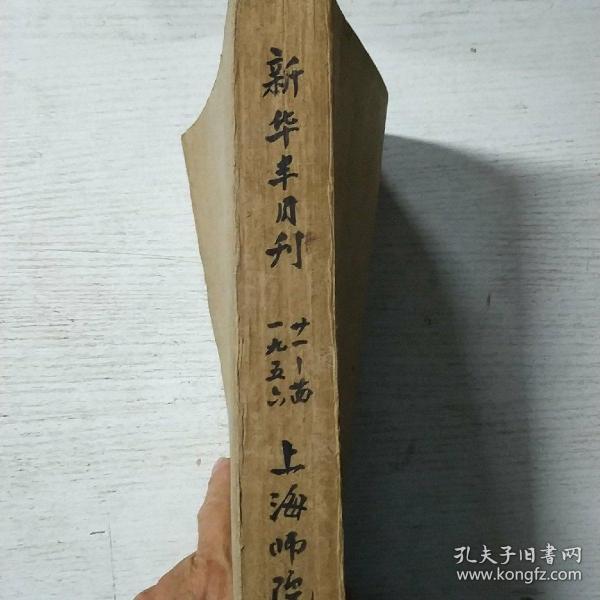 新华半月刊
廿一—廿四
一九五六
上海师院
孔夫子旧書网
www.kongfz.com